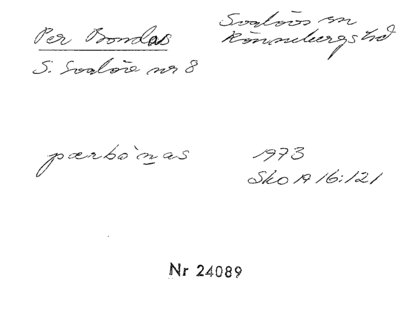 Per Bondas
Svalövs sn
Rönnebergs hd
S. Svalöv nr 8
pærbònas
1973
Sko A 16:121
Nr 24089